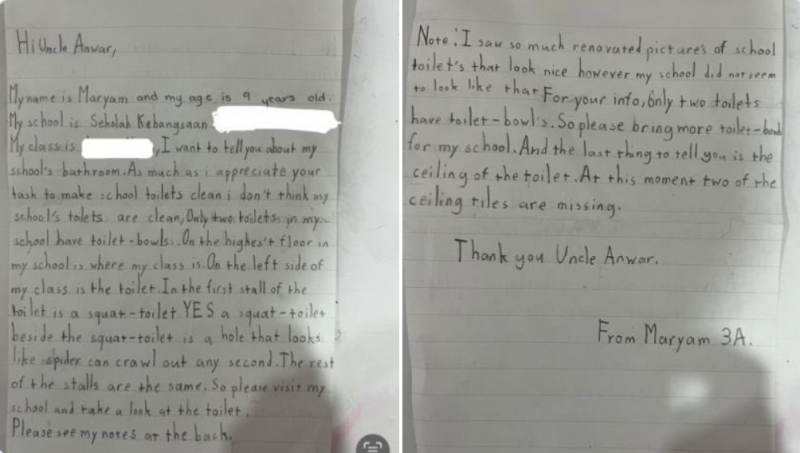 Hi Uncle Anwar,
My name is Maryam and my age is 9 years old.
My school is Sekolah Kebangsaan
My class is , I want to tell you about my
school's bathroom. As much as i appreciate your
task to make school toilets clean i don't think my
school's tolets are clean, Only two toilets in my
school have toilet-bowls. On the highest floor in
my school is where my class is. On the left side of
my class is the toilet. In the first stall of the
toilet is a squat-toilet YES a squat-toilet
beside the squat-toilet is a hole that looks
like spider can crawl out any second. The rest
of the stalls are the same. So please visit my
school and take a look at the toilet.
Please see my notes at the back.
Note: I saw so much renovated pictures of school
toilet's that look nice however my school did not seem
to look like that For your info, Only two toilets
have toilet-bowl's. So please bring more toilet-bowl
for my school. And the last thing to tell you is the
ceiling of the toilet. At this moment two of the
ceiling tiles are missing.
Thank you Uncle Anwar.
From Maryam 3A.